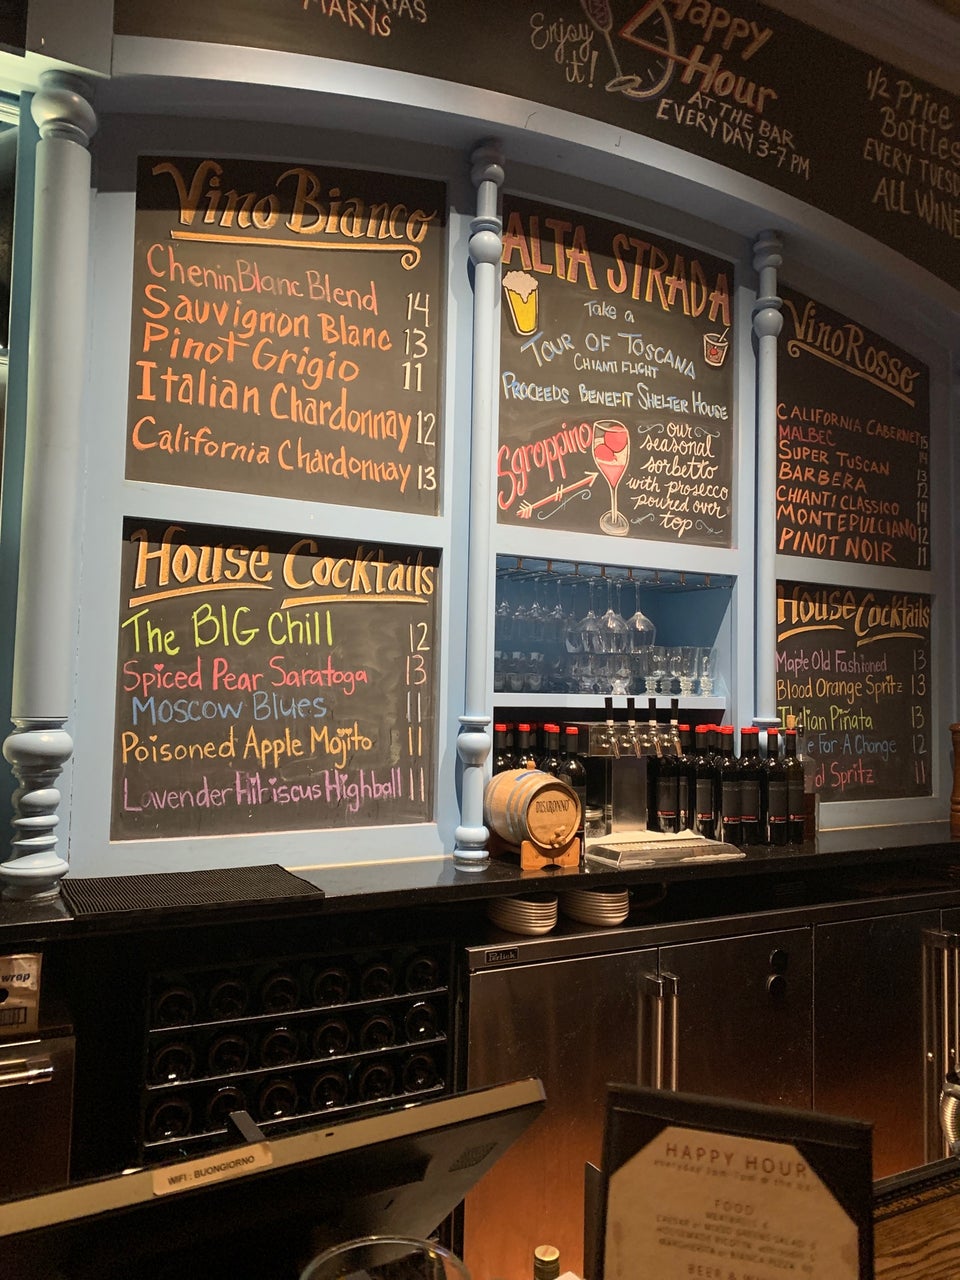 MARYS
Enjoy
it!
Happy
Hour
AT THE BAR
EVERYDAY 3-7 PM
1/2 Price
Bottles
EVERY
ALL WINE
Vino Bianco
Chenin Blanc Blend 14
Sauvignon Blanc 13
Pinot Grigio 11
Italian Chardonnay 12
California Chardonnay 13
ALTA STRADA
Take a
TOUR OF TOSCANA
CHIANTI FLIGHT
PROCEEDS BENEFIT SHELTER HOUSE
Sgroppino
our
seasonal
sorbetto
with prosecco
poured over
top
Vino Rosso
CALIFORNIA CABERNET 15
MALBEC
SUPER TUSCAN
BARBERA
CHIANTI CLASSICO
MONTEPULCIANO
PINOT NOIR 11
House Cocktails
The BIG Chill 12
Spiced Pear Saratoga 13
Moscow Blues 11
Poisoned Apple Mojito 11
Lavender Hibiscus Highball 11
House Cocktails
Maple Old Fashioned 13
Blood Orange Spritz 13
Italian Piñata 13
For A Change 12
Spritz 11
DISARONNO
Perlick
wrap
WIFI: BUONGIORNO
HAPPY HOUR
everyday
FOOD
MEATBALLS